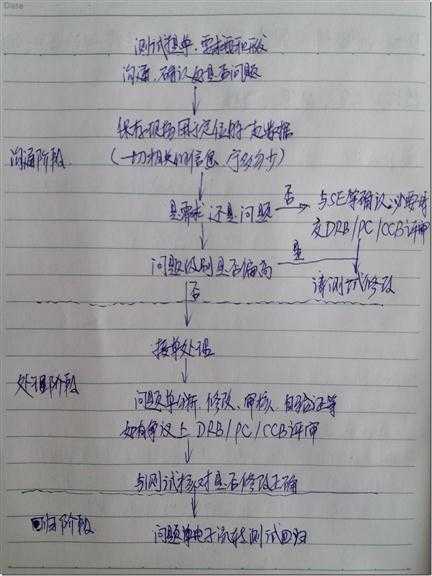 Date
测试提单,需求要和开发
沟通,确认好是否问题
保存现场用于定位的一起数据
(一切相关的信息,宁多勿少)
沟通阶段
是需求还是问题
否
与SE等确认,必要时
交DRB/PC/CCB评审
问题级别是否偏高
是
请测试修改
否
接单处理
处理阶段
问题单分析、修改、审核、自验证等
如有争议上DRB/PC/CCB评审
与测试核对是否修改正确
归阶段
问题单电子流转测试回归